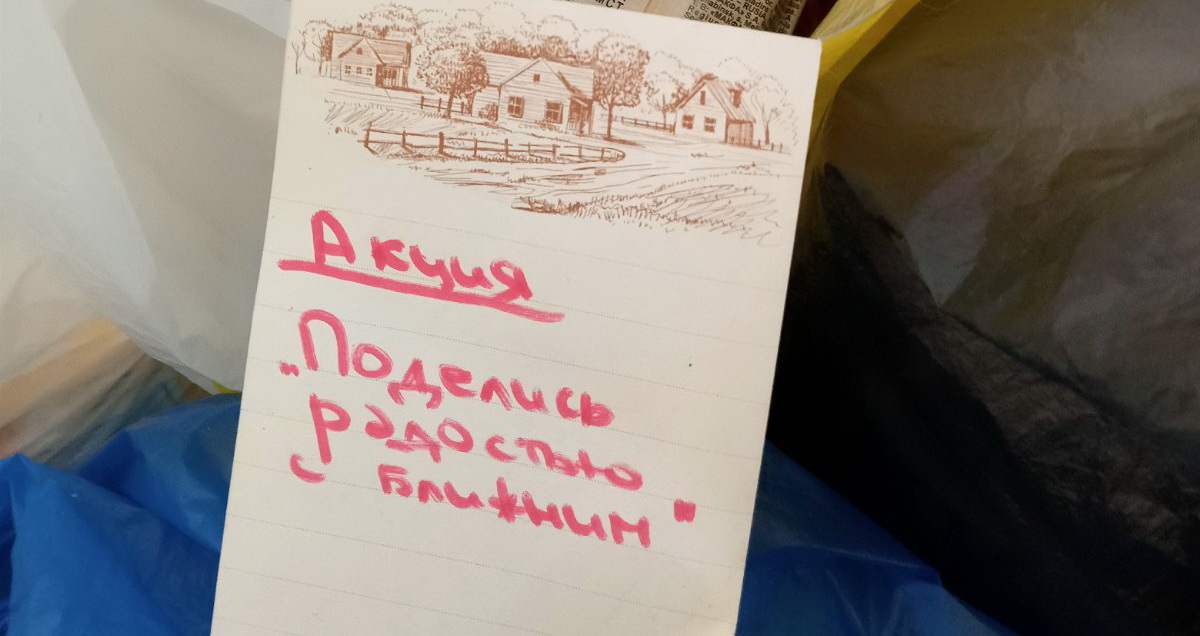 Акция
"Поделись
радостью
с ближним"